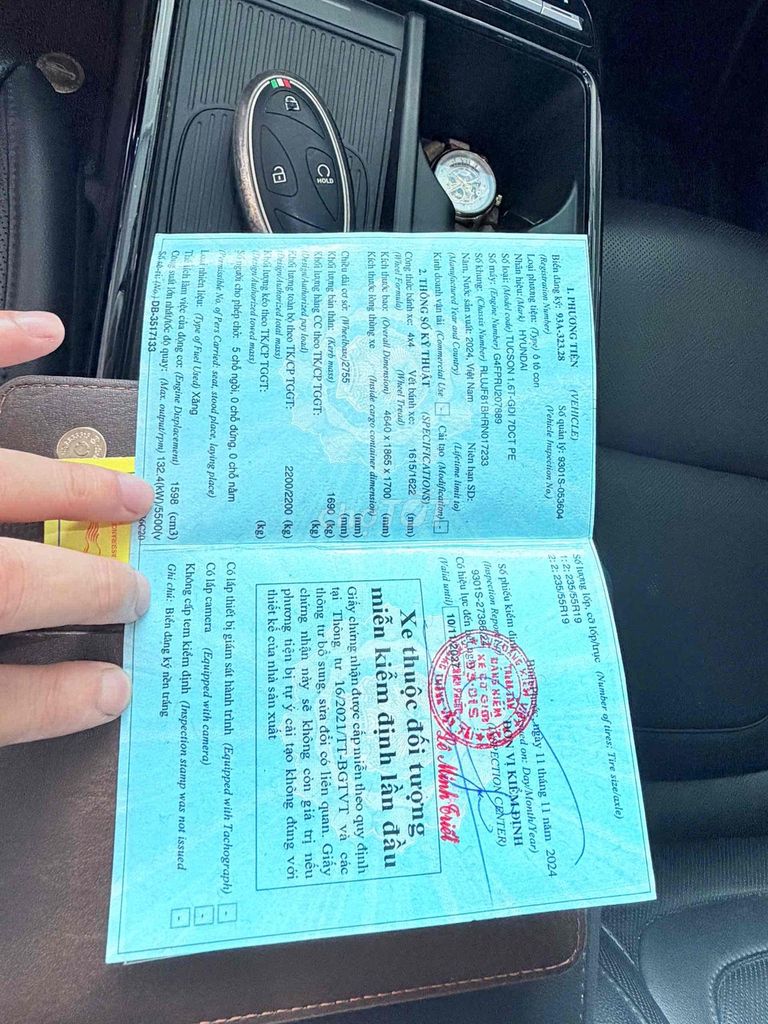 HOLD
1. PHƯƠNG TIỆN (VEHICLE)
Biển đăng ký: 93A-323.28 Số quản lý: 9301S-053604
(Registration Number) (Vehicle Inspection No.)
Loại phương tiện: (Type) ô tô con
Nhãn hiệu: (Mark) HYUNDAI
Số loại: (Model code) TUCSON 1.6T-GDI 7DCT PE
Số máy: (Engine Number) G4FPRU207689
Số khung: (Chassis Number) RLUJF81BHRN017233
Năm, Nước sản xuất: 2024, Việt Nam Niên hạn SD:
(Manufactured Year and Country) (Lifetime limit to)
Kinh doanh vận tải: (Commercial Use) - Cải tạo (Modification) -
2. THÔNG SỐ KỸ THUẬT (SPECIFICATIONS)
Công thức bánh xe: 4x4 Vết bánh xe: 1615/1622 (mm)
(Wheel Formula) (Wheel Tread)
Kích thước bao: (Overall Dimension) 4640 x 1865 x 1700 (mm)
Kích thước lòng thùng xe (Inside cargo container dimension)
(mm)
Chiều dài cơ sở: (Wheelbase) 2755 (mm)
Khối lượng bản thân: (Kerb mass) 1690 (kg)
Khối lượng hàng CC theo TK/CP TGGT: (kg)
(Design/Authorized pay load)
Khối lượng toàn bộ theo TK/CP TGGT: 2200/2200 (kg)
(Design/Authorized total mass)
Khối lượng kéo theo TK/CP TGGT: (kg)
(Design/Authorized towed mass)
Số người cho phép chở: 5 chỗ ngồi, 0 chỗ đứng, 0 chỗ nằm
(Permissible No. of Pers Carried: seat, stood place, laying place)
Loại nhiên liệu: (Type of Fuel Used) Xăng
Thể tích làm việc của động cơ: (Engine Displacement) 1598 (cm3)
Công suất lớn nhất/tốc độ quay: (Max. output/rpm) 132.4(kW)/5500(v
DB-3517133
Số lượng lốp, cỡ lốp/trục (Number of tires; Tire size/axle)
1: 2; 235/55R19
2: 2; 235/55R19
ngày 11 tháng 11 năm 2024
on: Day/Month/Year)
ĐƠN VỊ KIỂM ĐỊNH
(INSPECTION CENTER)
Số phiếu kiểm
(Inspection Repor
Có hiệu lực đến
(Valid until)
Lê Minh Triết
Xe thuộc đối tượng
miễn kiểm định lần đầu
Giấy chứng nhận được cấp miễn theo quy định
tại Thông tư 16/2021/TT-BGTVT và các
thông tư bổ sung, sửa đổi có liên quan. Giấy
chứng nhận này sẽ không còn giá trị nếu
phương tiện bị tự ý cải tạo không đúng với
thiết kế của nhà sản xuất
Có lắp thiết bị giám sát hành trình (Equipped with Tachograph) -
Có lắp camera (Equipped with camera) -
Không cấp tem kiểm định (Inspection stamp was not issued -
Ghi chú: Biển đăng ký nền trắng